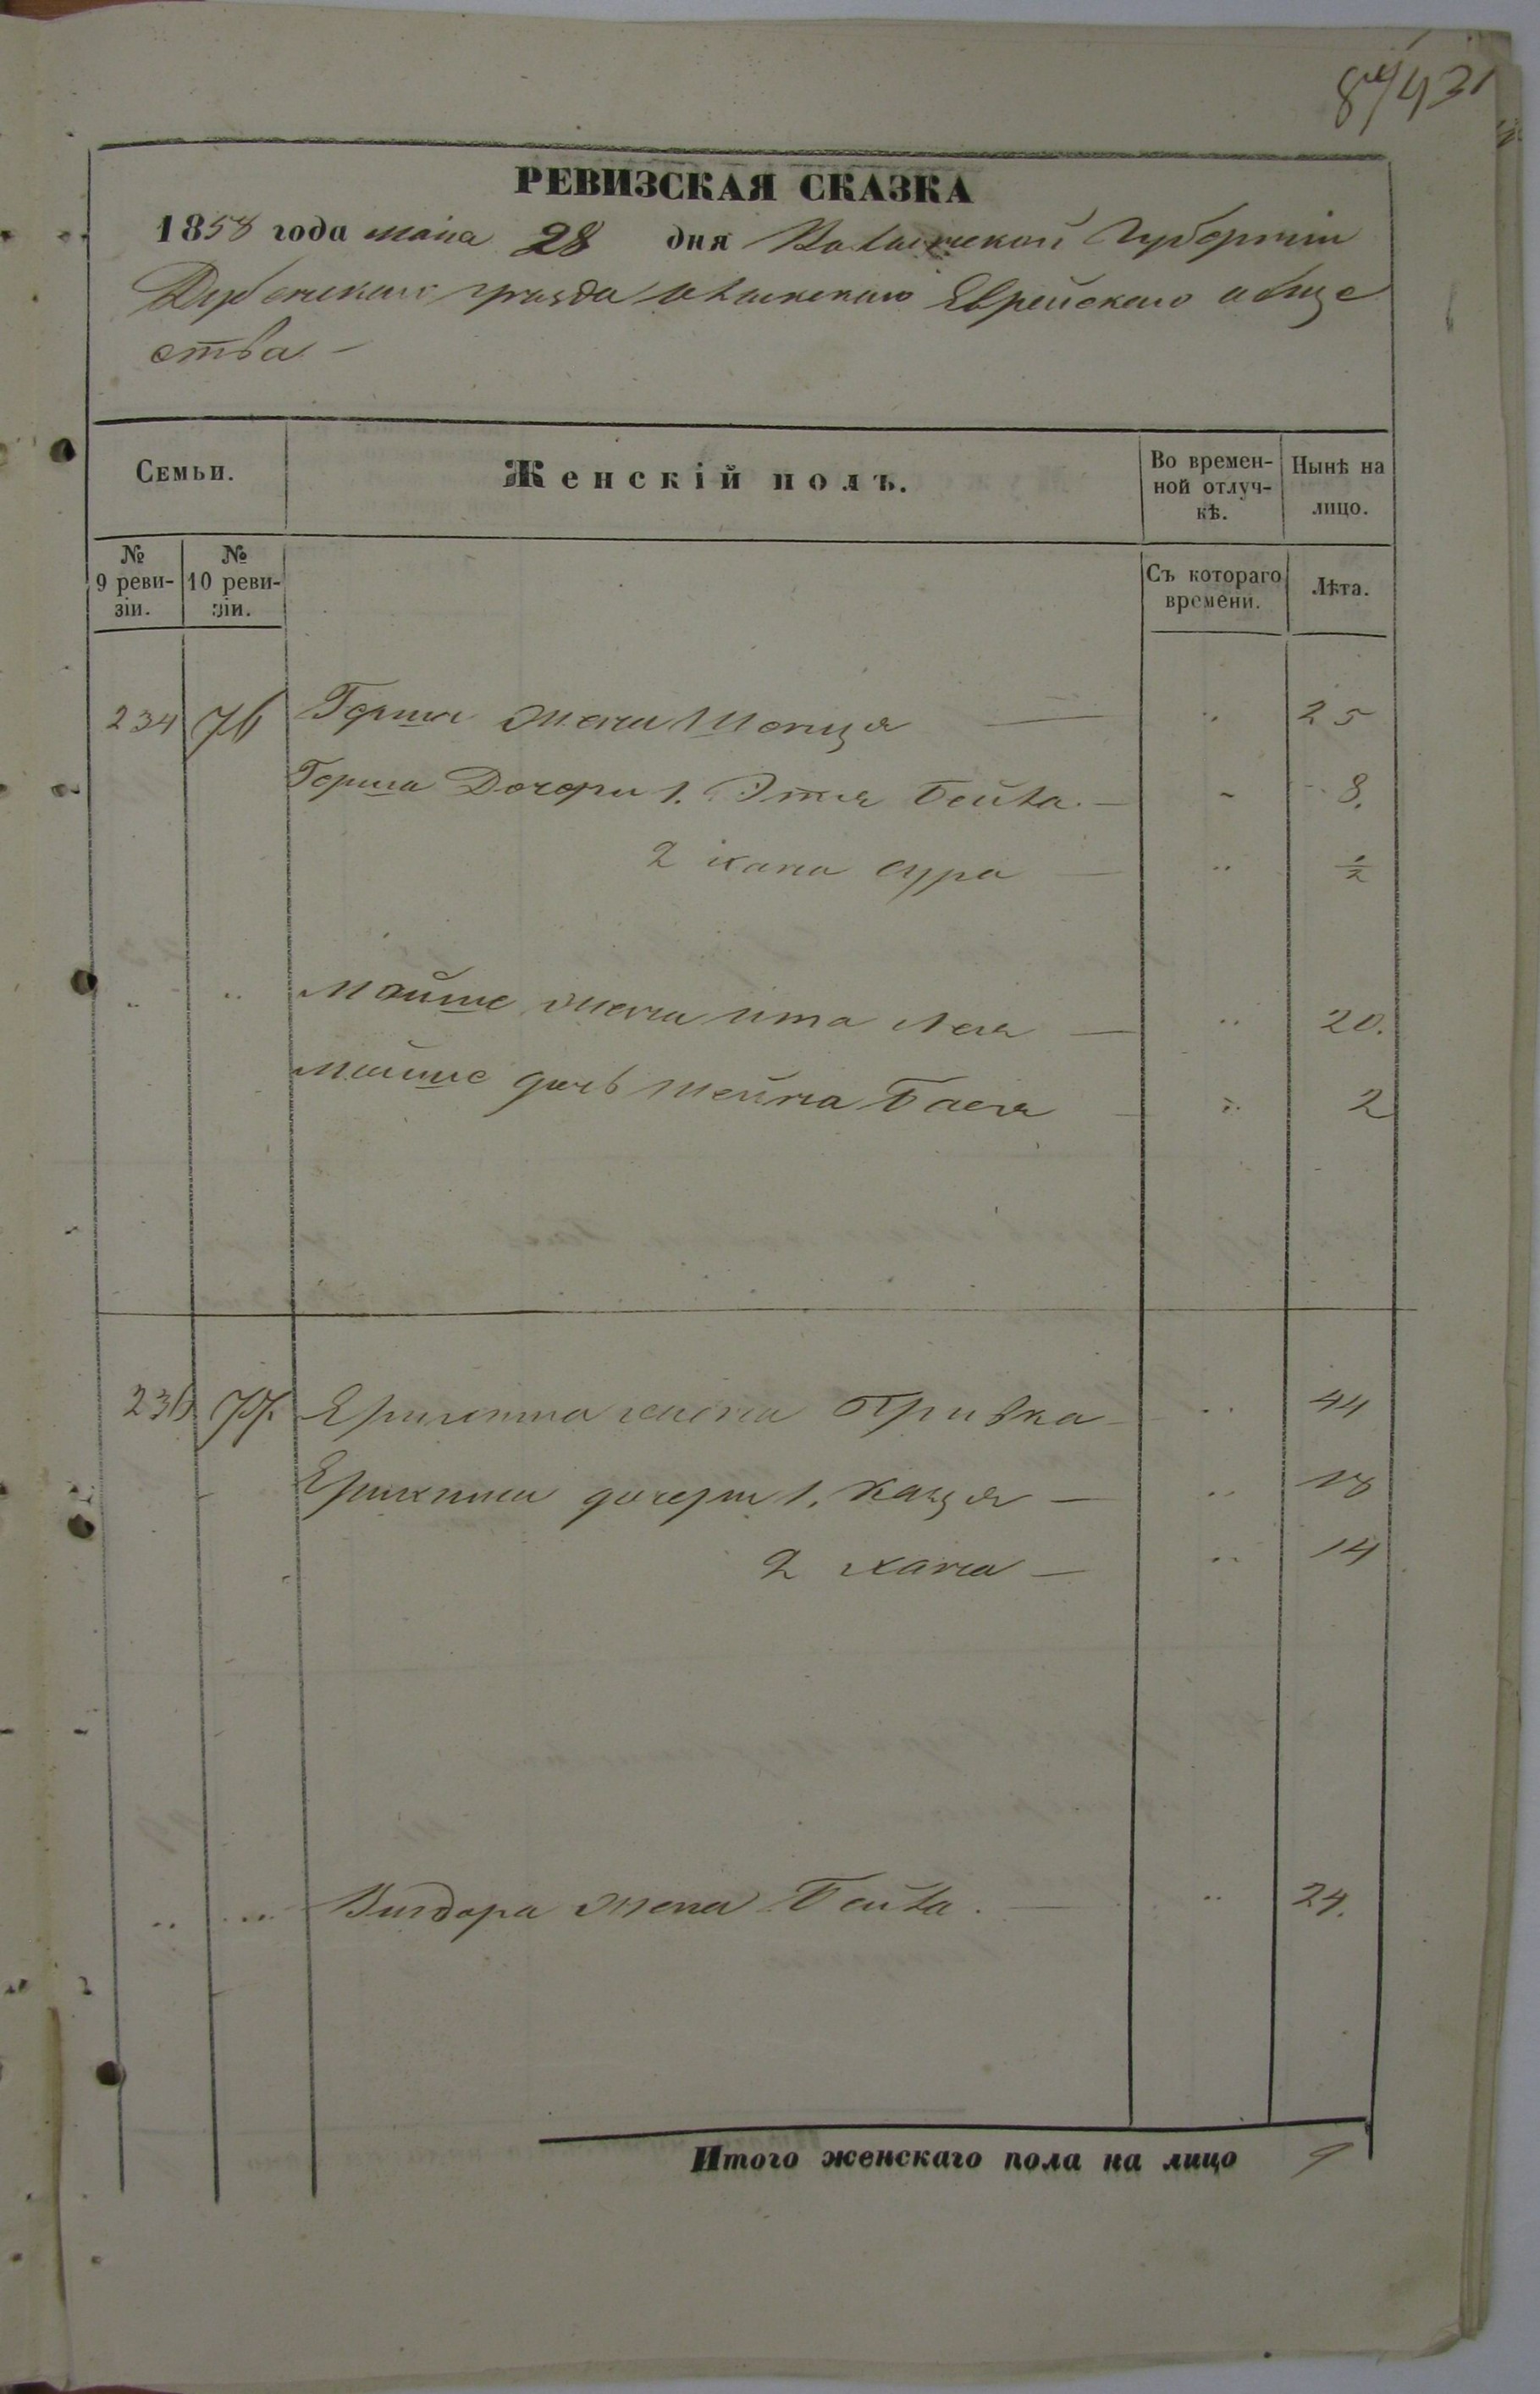 84/431
РЕВИЗСКАЯ СКАЗКА
1858 года маiя 28 дня Волынской Губернiи
Дубенскаго уезда Еврейскаго обще
ства
Семьи. Женскiй полъ. Во времен-ной отлуч-кѣ. Нынѣ на лицо.
№ 9 реви-зiи. № 10 реви-зiи. Съ котораго времени. Лѣта.
234 76 Герша жена Шепця — 25
Герша Дочери 1. Этя Бейла. — 8.
2 хана сура — ½
Мойше жена ита лея — 20.
мойше дочь Шейна Бася — 2
236 77. жена Ривка — 44
дочери 1. — 18
2 хана — 14
Вигдора жена Бейла. — 24.
Итого женскаго пола на лицо 9